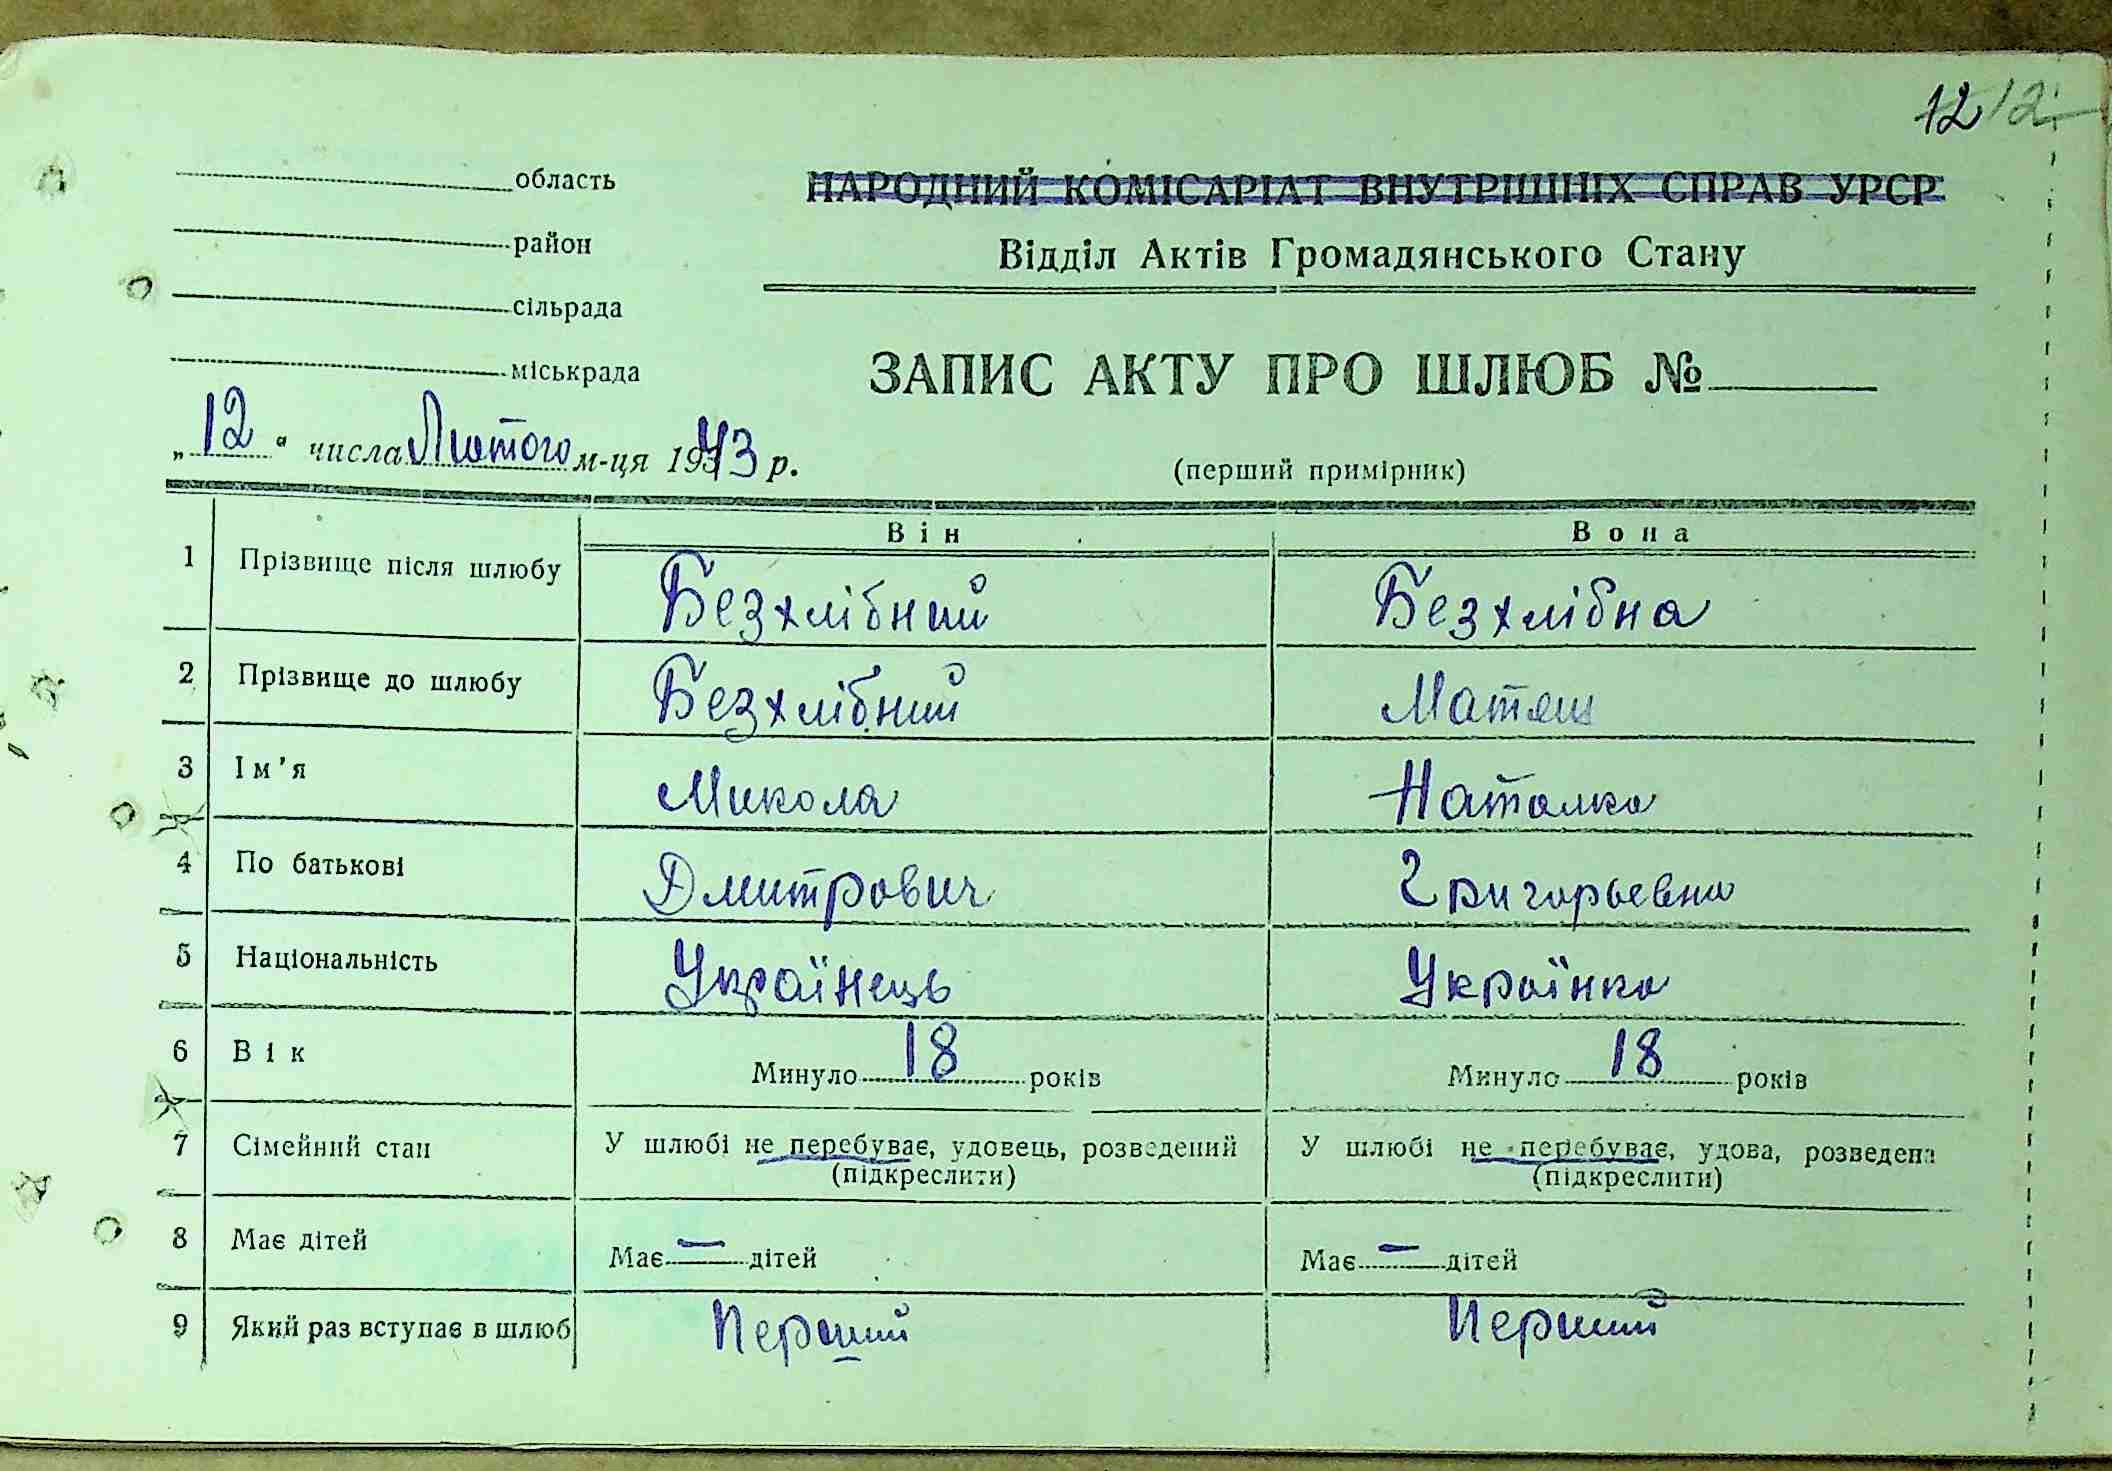 12 12
область
НАРОДНИЙ КОМІСАРІАТ ВНУТРІШНІХ СПРАВ УРСР
район
Відділ Актів Громадянського Стану
сільрада
міськрада
ЗАПИС АКТУ ПРО ШЛЮБ №
„12“ числа Лютого м-ця 1943 р.
(перший примірник)
Він Вона
1 Прізвище після шлюбу Безхлібний Безхлібна
2 Прізвище до шлюбу Безхлібний Матяш
3 Ім'я Микола Наталка
4 По батькові Дмитрович Григорьевна
5 Національність Українець Українка
6 Вік Минуло 18 років Минуло 18 років
7 Сімейний стан У шлюбі не перебуває, удовець, розведений У шлюбі не перебуває, удова, розведена
(підкреслити) (підкреслити)
8 Має дітей Має — дітей Має — дітей
9 Який раз вступає в шлюб Перший Перший